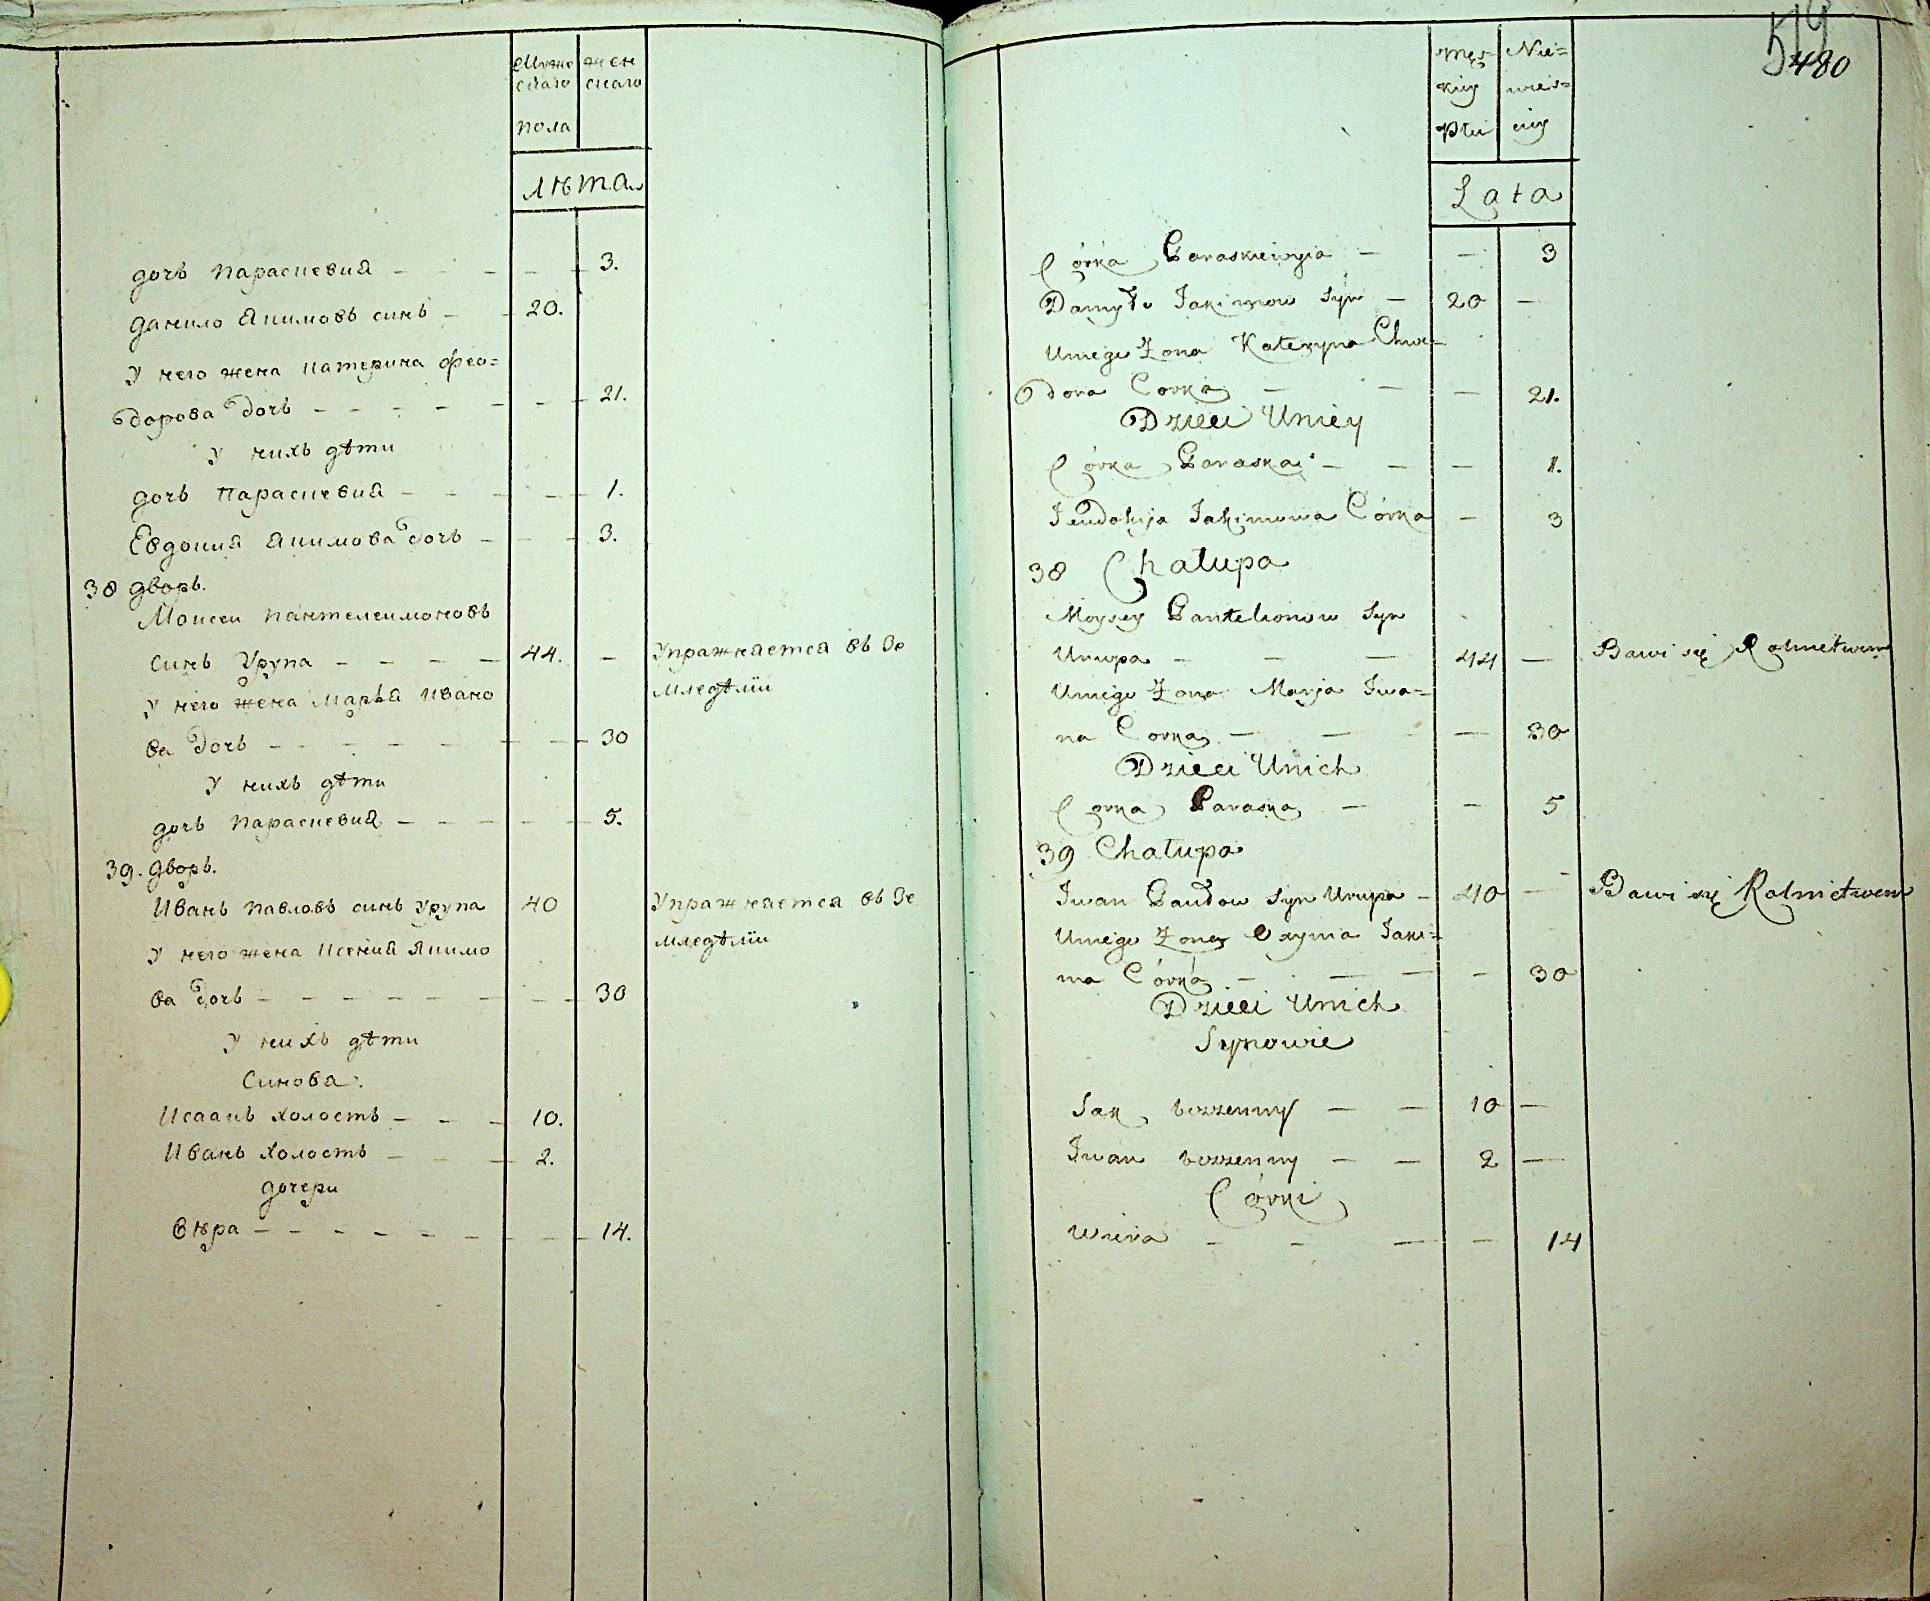 Мужескаго
женскаго
пола
лѣта
дочь Параскевия — — — — 3.
Данило Якимовъ синъ — — 20.
У него жена Катерина Фео=
дорова дочь — — — — — 21.
У нихъ дѣти
дочь Параскевия — — — — 1.
Евдокия Якимова дочь — — 3.
38 дворъ.
Моисей Пантелеимоновъ
синъ Урупа — — — — 44. — Упражняется въ Зе
У него жена Марья Ивано
мледѣлїи
ва дочь — — — — — — 30
У нихъ дѣти
дочь Параскевия — — — — 5.
39. дворъ.
Иванъ Павловъ синъ Урупа 40 Упражняется въ Зе
мледѣлїи
У него жена Ксения Якимо
ва дочь — — — — — — — 30
У нихъ дѣти
Синова.
Исаакъ холостъ — — — 10.
Иванъ холостъ — — — 2.
дочери
Вѣра — — — — — — — — 14.
480
Męs=
kiey
Płci
Nie=
wies=
ciey
Lata
Córka Paraskiewija — — 3
Damyło Jakimow Syn — 20 —
Uniego Zona Kateryna Chwe=
dora Corka — — — 21.
Dzieci Uniey
Córka Paraska — — — 1.
Jeudokija Jakimowa Córka — 3
38 Chałupa
Moysey Pantelionow Syn
Urupa — — — 44 — Bawi się Rolnictwem
Uniego Zona Marja Iwa=
na Corka — — — 30
Dzieci Unich
Corka Paraska — — 5
39 Chałupa
Iwan Pawłow Syn Urupa — 40 — Bawi się Rolnictwem
Uniego Zona Oxynia Jaki=
ma Córka — — — — 30
Dzieci Unich
Synowie
Sak bezzenny — — 10 —
Iwan bezzenny — — 2 —
Córki
Wiera — — — — 14